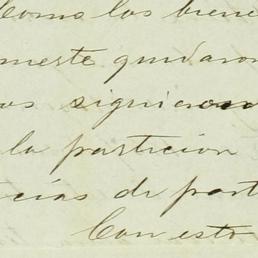 Como los biene
meste quidaron
os siguieron
la particion
cias de part
Con esto